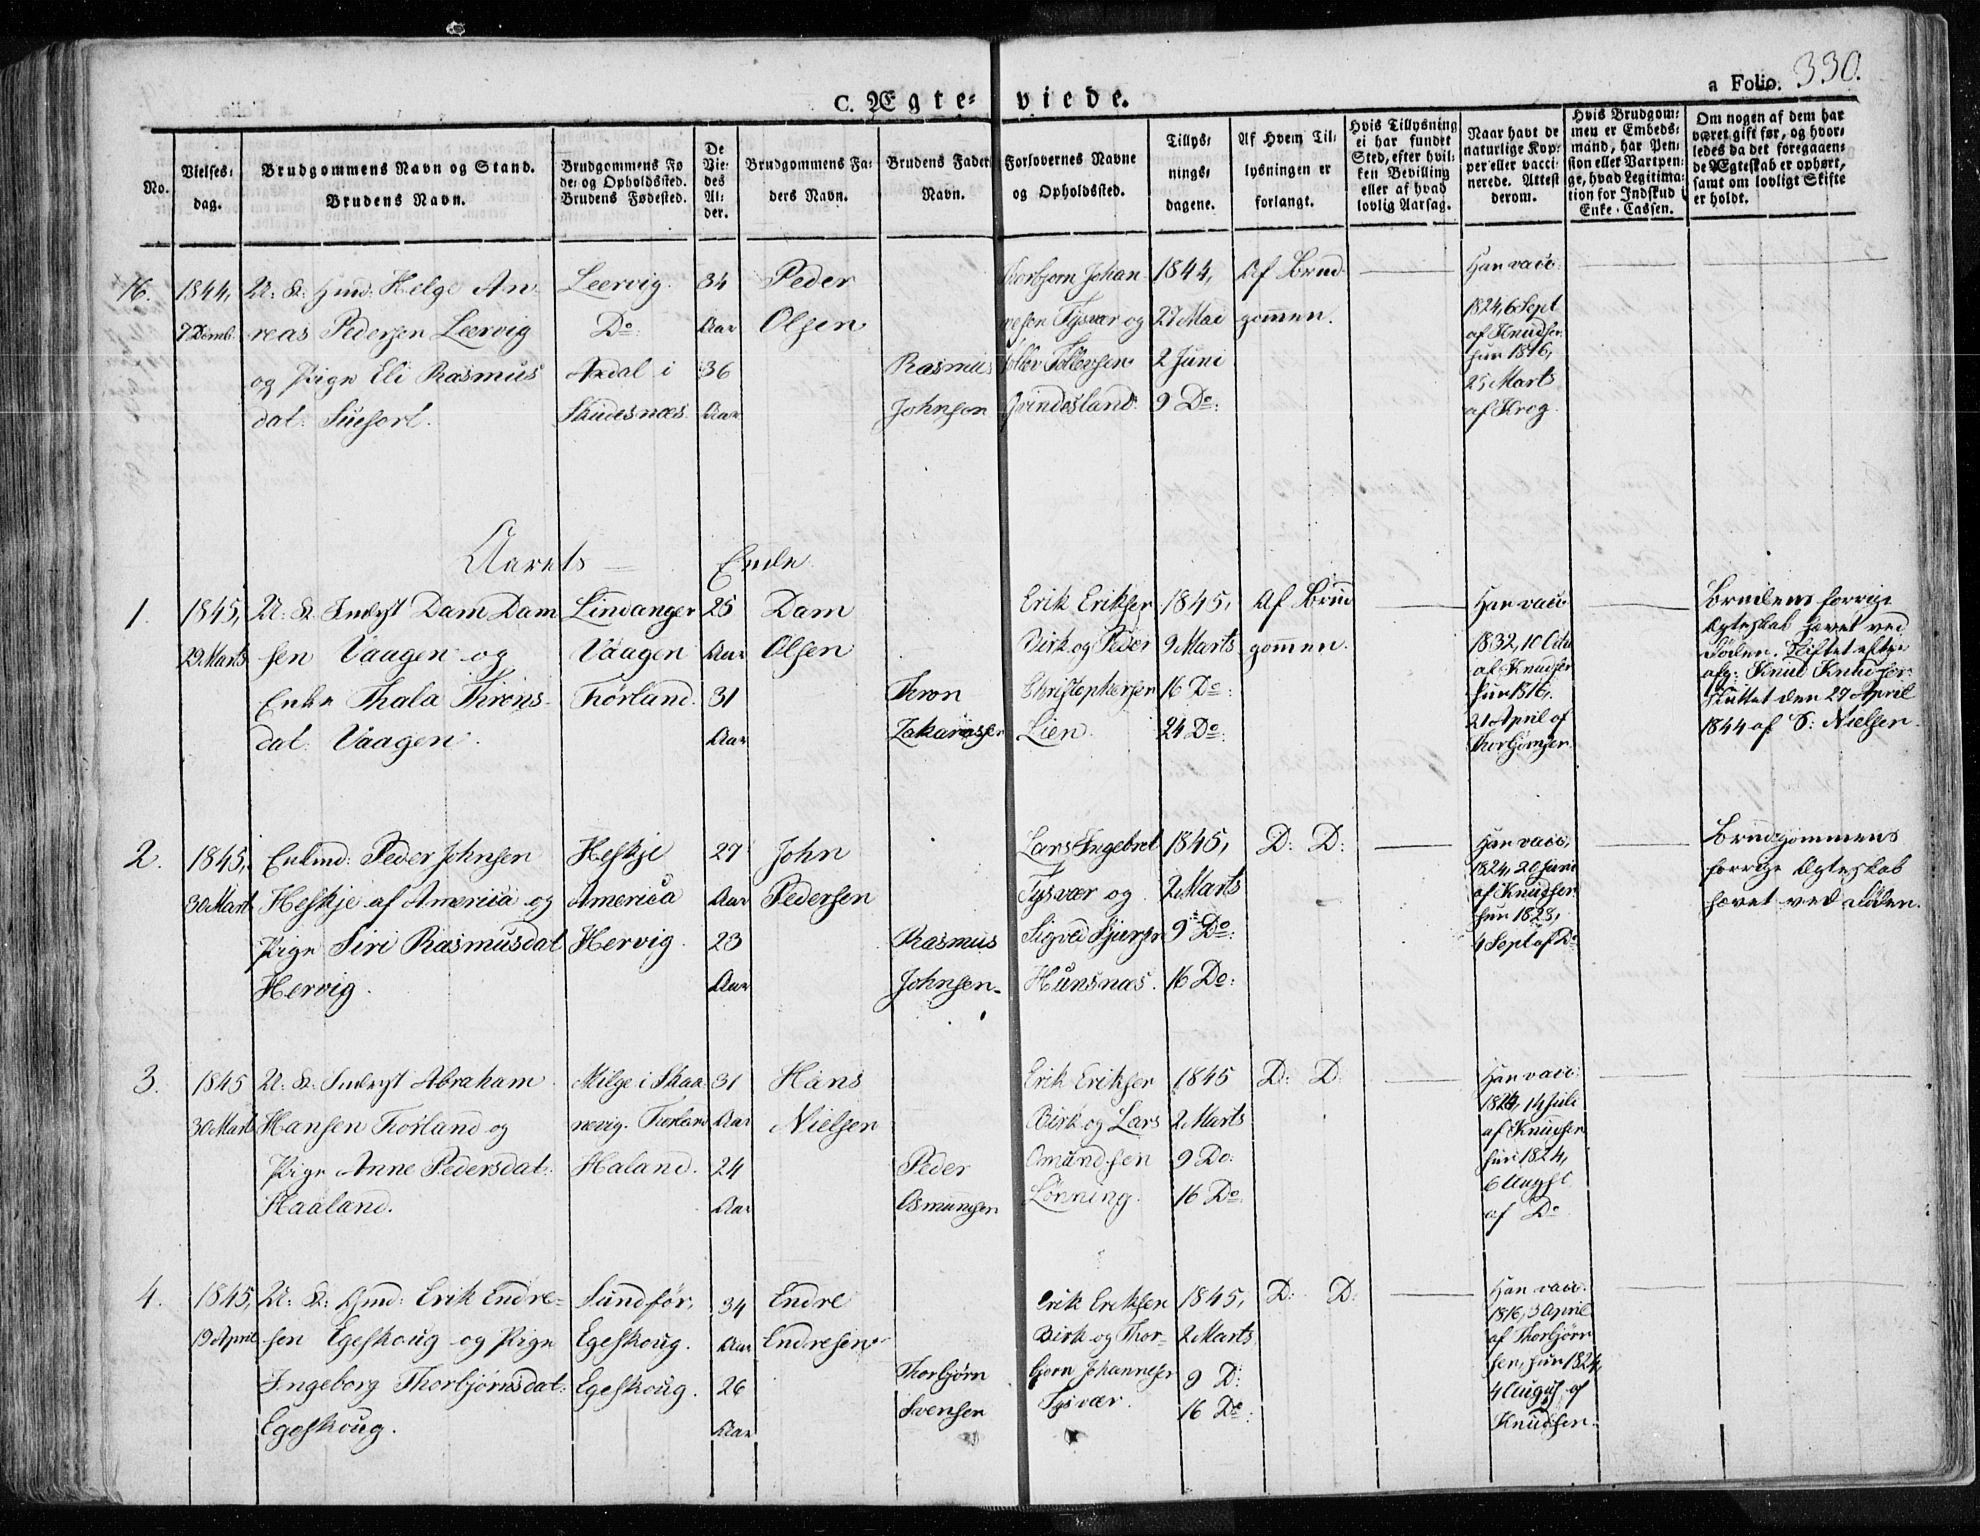 a Folio. 330.
C. Ægte-viede.
No.
Vielses-
dag.
Brudgommens Navn og Stand.
Brudens Navn.
Brudgommens Fø
de- og Opholdssted.
Brudens Fødested.
De
Vie-
des
Al-
der.
Brudgommens Fa-
ders Navn.
Brudens Faders
Navn.
Forlovernes Navne
og Opholdssted.
Tillys-
nings-
dagene.
Af Hvem Til-
lysningen er
forlangt.
Hvis Tillysning
ei har fundet
Sted, efter hvil-
ken Bevilling
eller af hvad
lovlig Aarsag.
Naar havt de
naturlige Kop-
per eller vacci-
nerede. Attest
derom.
Hvis Brudgom-
men er Embeds-
mand, har Pen-
sion eller Vartpen-
ge, hvad Legitima-
tion for Indskud i
Enke-Cassen.
Om nogen af dem har
været gift før, og hvor-
ledes da det foregaaen-
de Ægteskab er ophørt,
samt om lovligt Skifte
er holdt.
16.
1844,
7 Decmb.
U: K: Helge An-
reas Pedersen Leervig
og Pige Eli Rasmus
dat:
Leervig.
Do
i
Skudesnæs
34
Aar
36
Aar
Peder
Olsen
Rasmus
Johnson
Johan
Tysvær og
1844,
27 Mai
2 Juni
9 Do:
Af Brud
gommen.
Han vacc:
1824, 6 Sept
af Knudsen
hun 1816,
25 Marts
af Krog.
Aarets — Ende
1.
1845,
29 Marts
U: K: Inderst Dam Dam
sen Vaagen og
Enke Thala Throns-
dat: Vaagen.
Lindanger
Vaagen
Førland.
25
Aar
31
Aar
Dam
Olsen
Tron
Zakariasen
Erik Eriksen
Birk og Peder
Christophersen
Lien.
1845,
9 Marts
16 Do:
24 Do:
Af Brud
gommen.
Han vacc
1832, 10 Octo
af Knudsen
hun 1816,
21 April af
Thorbjørnsen.
Brudens forrige
Ægteskab hævet ved
Døden. Skiftet efter
afg: Knud Knudsen
sluttet den 29 April
1844 af S: Nielsen.
2.
1845,
30 Mart
Enkmd: Peder Johnsen
Heskje af America og
Pige Siri Rasmusdat
Hervig.
Heskje
America
Hervig.
29
Aar
23
Aar
John
Pedersen
Rasmus
Johnsen.
Lars Ingebret
Tysvær og
Sigved
Hunsnæs.
1845,
2 Marts
9 Do:
16 Do:
D: D:
Han vacc,
1824, 20 Juni
af Knudsen
hun 1823,
4 Sept af Do
Brudgommens
forrige Ægteskab
hævet ved Døden.
3.
1845
30 Mart
U: K: Inderst Abraham
Hansen Førland og
Pige Anne Pedersdat:
Haaland.
Milge i Skaa
nevig. Førland
Haland.
31
Aar
24
Aar
Hans
Nielsen
Peder
Osmunsen
Erik Eriksen
Birk og Lars
Omundsen
Lønning.
1845
2 Marts
9 Do:
16 Do:
D: D:
Han vacc:
1824, 14 Juli
af Knudsen
hun 1824,
6 Augst
af Do
4.
1845,
19 April
U: K: Gmd: Erik Endre-
sen Egeskoug og Pige
Ingeborg Thorbjørnsdat:
Egeskoug.
Sundfør,
Egeskoug.
Egeskoug.
34
Aar
26
Aar
Endre
Endresen
Thorbjørn
Svensen
Erik Eriksen
Birk og Thor-
bjørn Johannesen
Tysvær.
1845,
2 Marts
9 D:
16 Do:
D: D:
Han vacc:
1816, 3 April
af Thorbjørn
sen, hun 1824,
4 August af
Knudsen.